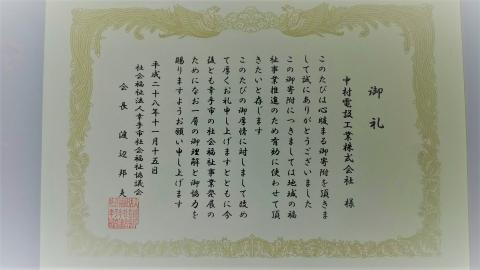 御礼
中村電設工業株式会社 様
このたびは心暖まる御寄附を頂きま
して誠にありがとうございました
この御寄附につきましては地域の福
祉事業推進のため有効に使わせて頂
きたいと存じます
このたびの御厚情に対しまして改め
て厚くお礼申し上げますとともに今
後とも幸手市の社会福祉事業発展の
ためになお一層の御理解と御協力を
賜りますようお願い申し上げます
平成二十八年十一月十五日
社会福祉法人幸手市社会福祉協議会
会長 渡辺邦夫